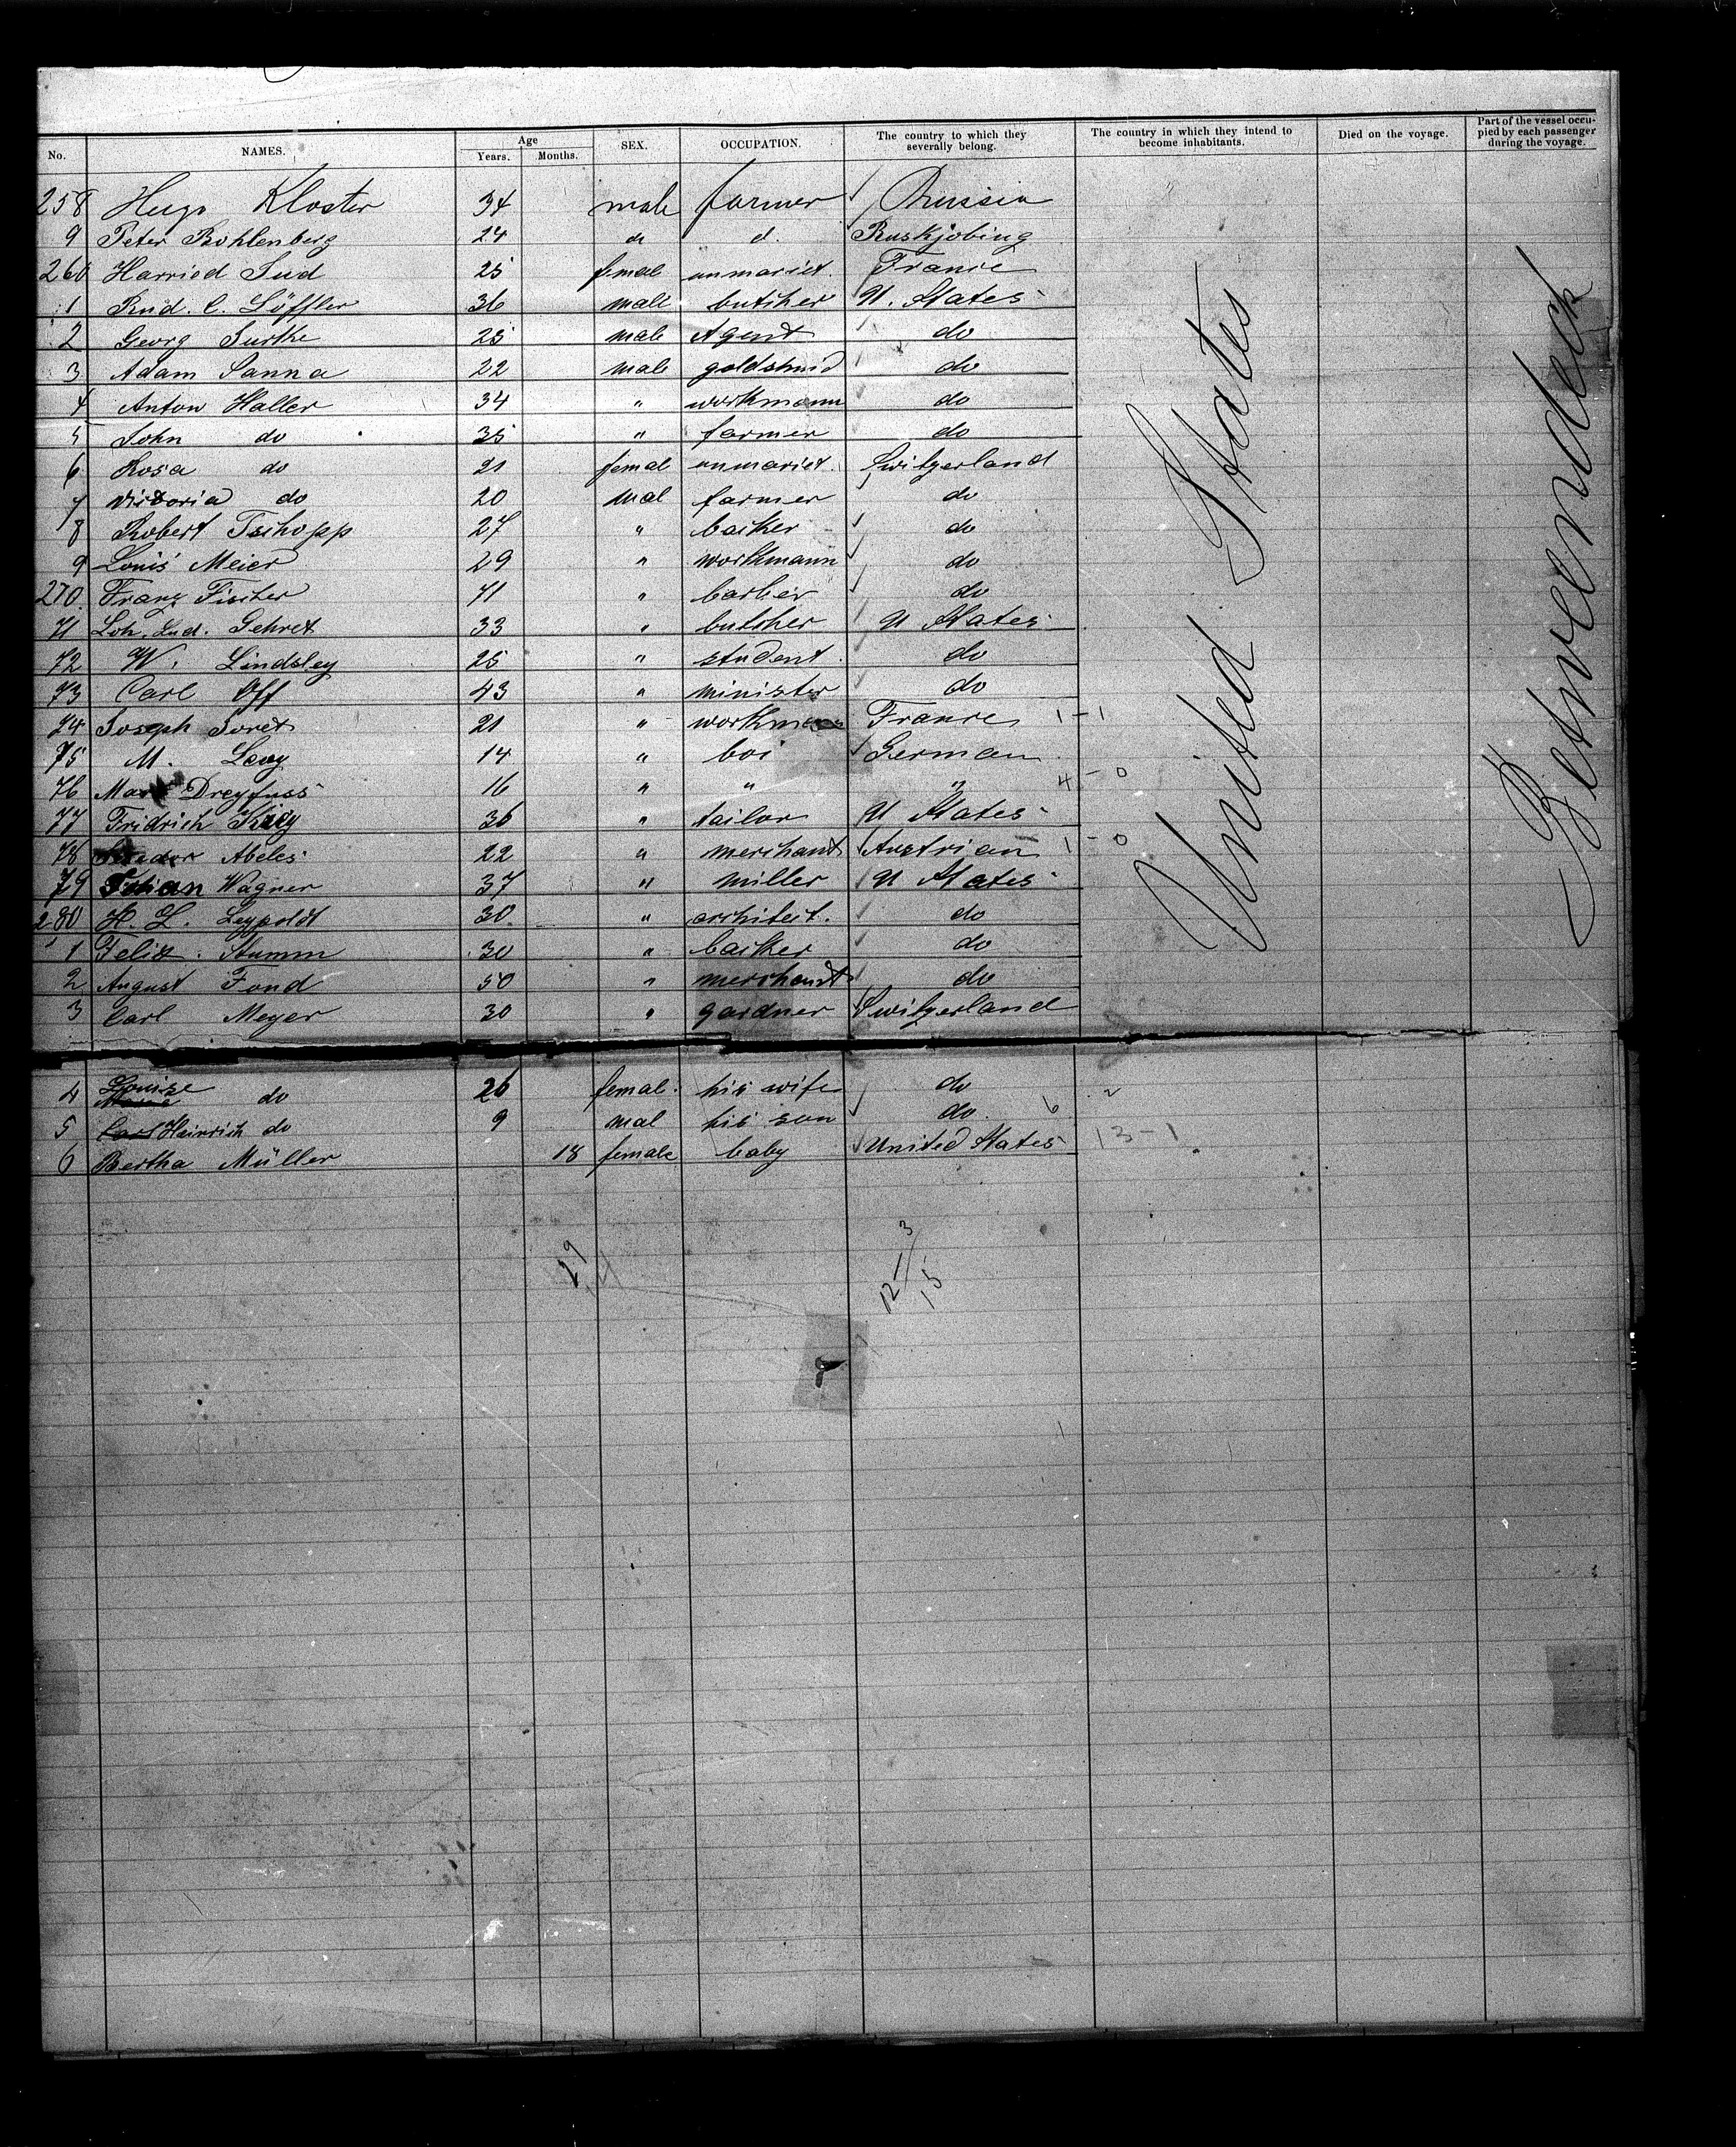 No. NAMES. Age Years. Months. SEX. OCCUPATION. The country to which they severally belong. The country in which they intend to become inhabitants. Died on the voyage. Part of the vessel occupied by each passenger during the voyage.
258 Hugo Kloster 34 male farmer Russia
9 Peter Bohlenberg 24 do d. Ruskjobing
260 Harried Sud 25 femal unmariet. France
1 Rud. C. Löffler 36 male butcher U. States
2 Georg Surthe 25 male Agent do
3 Adam Sanna 22 male goldshmid do
4 Anton Haller 34 " workmann do
5 John do 35 " farmer do
6 Rosa do 21 femal unmariet. Switzerland
7 Victoria do 20 mal farmer do
8 Robert Tschopp 27 " backer do
9 Louis Meier 29 " workmann do
270. Franz Fischer 41 " barbier do
71 Loh. Lud. Gehret 33 " butcher U States
72 W. Lindsley 25 " student. do
73 Carl Off 43 " minister do
74 Joseph Soret 21 " workmann France 1-1
75 M. Levy 14 " boi German
76 Marx Dreyfuss 16 " " " 4-0
77 Fridrich King 36 " tailor U States
78 Abeles 22 " merchant Austrian 1-0
79 Wagner 37 " miller U States
280 H. L. Leypoldt 30 " architect. do
1 Felix. Stumm 30 " backer do
2 August Fond 50 " merchandt do
3 Carl Meyer 30 " gardner Switzerland
4 Louise do 26 femal. his wife do 2
5 Carl Heinrich do 9 mal his son do. 6
6 Bertha Müller 18 female baby United States 13-1
United States
Betweendeck
29
12/3
15